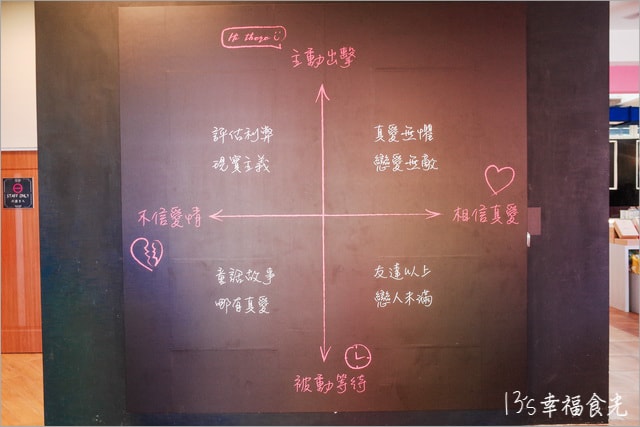 Hi there
主動出擊
評估利弊
現實主義
真愛無懼
戀愛無敵
不信愛情
相信真愛
童話故事
哪有真愛
友達以上
戀人未滿
被動等待
STAFF ONLY
13's幸福食光